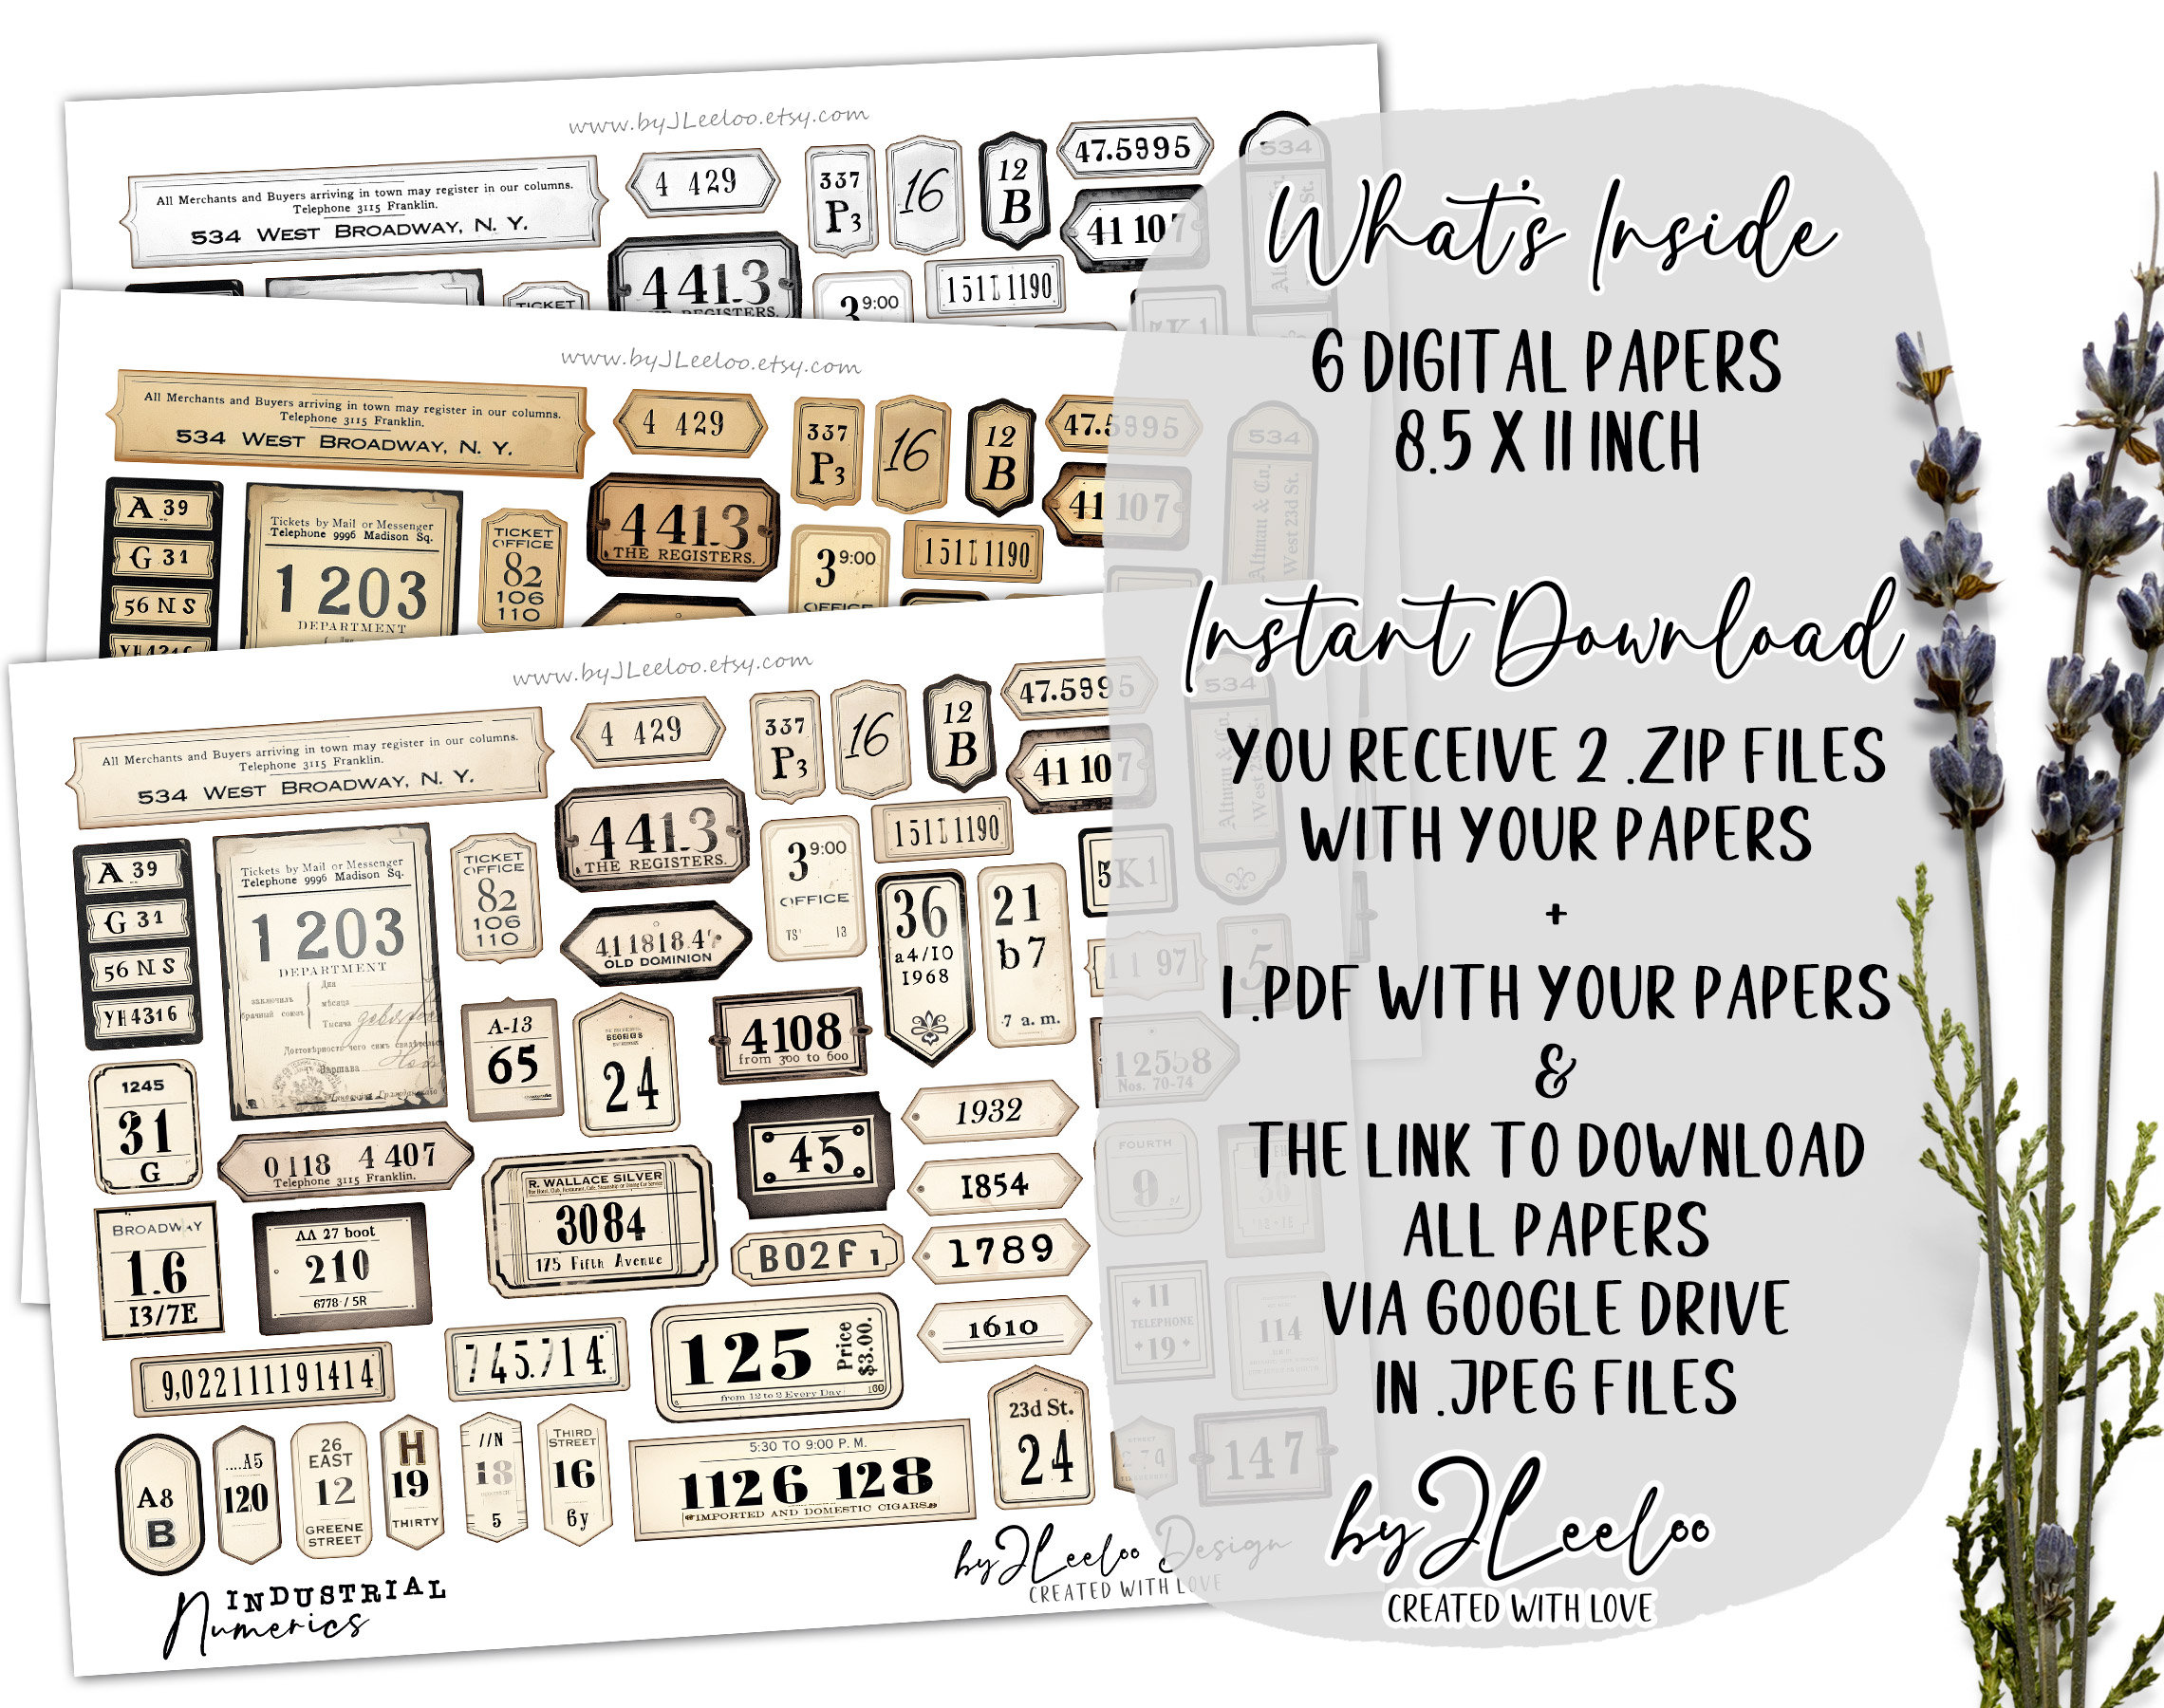 www.byJLeeloo.etsy.com
All Merchants and Buyers arriving in town may register in our columns.
Telephone 3115 Franklin.
534 WEST BROADWAY, N. Y.
4 429
337
P3
16
12
B
47.5995
41 107
534
4413
THE REGISTERS.
3 9:00
1190
TICKET
K1
www.byJLeeloo.etsy.com
All Merchants and Buyers arriving in town may register in our columns.
Telephone 3115 Franklin.
534 WEST BROADWAY, N. Y.
4 429
337
P3
16
12
B
47.5995
41 107
534
Altman & Co.
West 23d St.
A 39
G 31
56 N S
YH4316
Tickets by Mail or Messenger
Telephone 9996 Madison Sq.
1 203
DEPARTMENT
TICKET
OFFICE
82
106
110
4413
THE REGISTERS.
3 9:00
OFFICE
1511 1190
www.byJLeeloo.etsy.com
All Merchants and Buyers arriving in town may register in our columns.
Telephone 3115 Franklin.
534 WEST BROADWAY, N. Y.
4 429
337
P3
16
12
B
47.5995
41 107
534
Altman & Co.
A 39
G 31
56 N S
YH4316
Tickets by Mail or Messenger
Telephone 9996 Madison Sq.
1 203
DEPARTMENT
TICKET
OFFICE
82
106
110
4413
THE REGISTERS.
3 9:00
OFFICE
13
1511 1190
5K1
OLD DOMINION
36
a4/10
1968
21
b7
7 a. m.
11 97
5
A-13
65
24
4108
from 300 to 600
12558
Nos. 70-74
1245
31
G
0118 4 407
Telephone 3115 Franklin.
45
1932
1854
1789
1610
FOURTH
9
BROADWAY
1.6
13/7E
AA 27 boot
210
6778 / 5R
R. WALLACE SILVER
3084
175 Fifth Avenue
B02F 1
11
TELEPHONE
19
114
9,022111191414
745.714
125
Price
$3.00.
from 12 to 2 Every Day
100
A8
B
....A5
120
26
EAST
12
GREENE
STREET
H
19
THIRTY
//N
18
5
THIRD
STREET
16
6y
5:30 TO 9:00 P. M.
1126 128
IMPORTED AND DOMESTIC CIGARS.
23d St.
24
147
INDUSTRIAL
Numerics
byJLeeloo Design
CREATED WITH LOVE
What's Inside
6 DIGITAL PAPERS
8.5 X 11 INCH
Instant Download
YOU RECEIVE 2 .ZIP FILES
WITH YOUR PAPERS
+
1 .PDF WITH YOUR PAPERS
&
THE LINK TO DOWNLOAD
ALL PAPERS
VIA GOOGLE DRIVE
IN .JPEG FILES
byJLeeloo
CREATED WITH LOVE